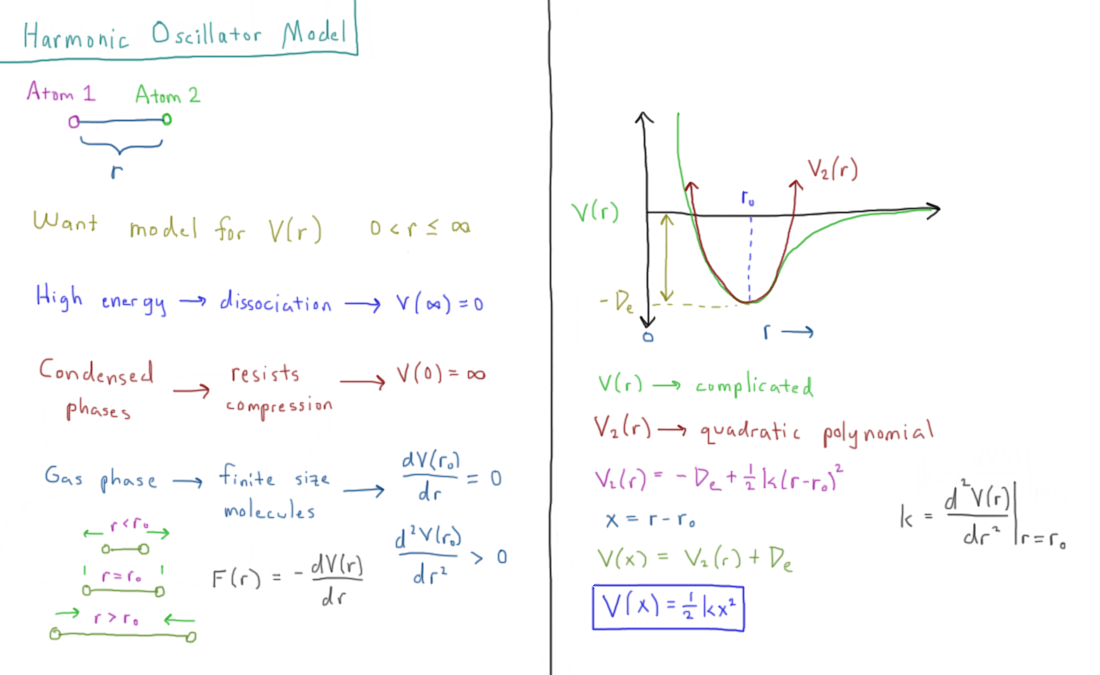 Harmonic Oscillator Model
Atom 1 Atom 2
r
Want model for V(r) 0 < r ≤ ∞
High energy → dissociation → V(∞) = 0
Condensed phases → resists compression → V(0) = ∞
Gas phase → finite size molecules → dV(r₀)/dr = 0
d²V(r₀)/dr² > 0
← r < r₀ →
r = r₀
→ r > r₀ ←
F(r) = - dV(r)/dr
V₂(r)
r₀
V(r)
-Dₑ
0
r →
V(r) → complicated
V₂(r) → quadratic polynomial
V₂(r) = -Dₑ + ½ k(r-r₀)²
k = d²V(r)/dr² |r=r₀
x = r - r₀
V(x) = V₂(r) + Dₑ
V(x) = ½ kx²